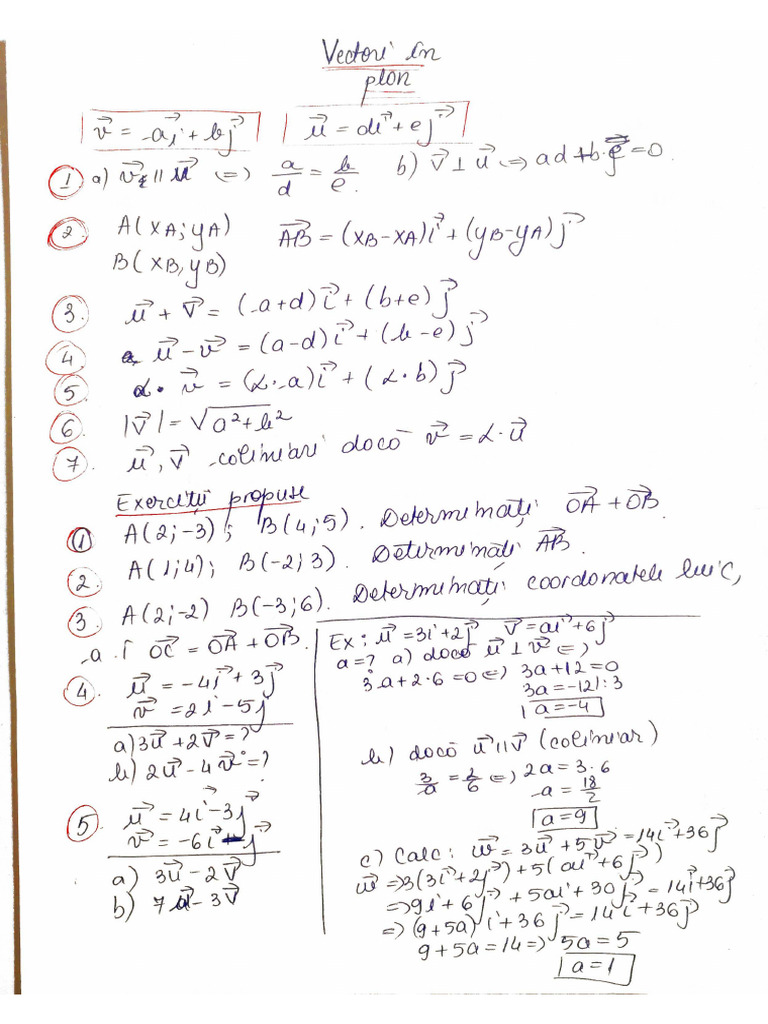 Vectori în
plan
v⃗ = ai⃗ + bj⃗
u⃗ = di⃗ + ej⃗
1 a) v⃗ ∥ u⃗ (=) a/d = b/e. b) v⃗ ⊥ u⃗ => ad + b·e = 0.
2 A(xA; yA) AB⃗ = (xB-xA)i⃗ + (yB-yA)j⃗
B(xB, yB)
3. u⃗ + v⃗ = (a+d)i⃗ + (b+e)j⃗
4 u⃗ - v⃗ = (a-d)i⃗ + (b-e)j⃗
5 α· v⃗ = (α·a)i⃗ + (α·b)j⃗
6 |v⃗| = √a²+b²
7. u⃗, v⃗ coliniari dacă v⃗ = α·u⃗
Exerciții propuse
1 A(2;-3); B(4;5). Determinați OA⃗ + OB⃗.
2. A(1;4); B(-2;3). Determinați AB⃗.
3 A(2;-2) B(-3;6). Determinați coordonatele lui C,
a. î OC⃗ = OA⃗ + OB⃗.
4. u⃗ = -4i⃗ + 3j⃗
v⃗ = 2i - 5j
a) 3u⃗ + 2v⃗ = ?
b) 2u⃗ - 4v⃗ = ?
5 u⃗ = 4i⃗ - 3j⃗
v⃗ = -6i⃗ + j⃗
a) 3u⃗ - 2v⃗
b) 7u⃗ - 3v⃗
Ex: u⃗ = 3i⃗ + 2j⃗ v⃗ = ai⃗ + 6j⃗
a=? a) dacă u⃗ ⊥ v⃗ (=)
3·a + 2·6 = 0 (=) 3a + 12 = 0
3a = -12 |:3
a = -4
b) dacă u⃗ ∥ v⃗ (coliniar)
3/a = 2/6 (=) 2a = 3·6
a = 18/2
a = 9
c) Calc: w⃗ = 3u⃗ + 5v⃗ = 14i⃗ + 36j⃗
w⃗ => 3(3i⃗ + 2j⃗) + 5(ai⃗ + 6j⃗)
=> 9i⃗ + 6j⃗ + 5ai⃗ + 30j⃗ = 14i⃗ + 36j⃗
=> (9+5a)i⃗ + 36j⃗ = 14i⃗ + 36j⃗
9 + 5a = 14 => 5a = 5
a = 1